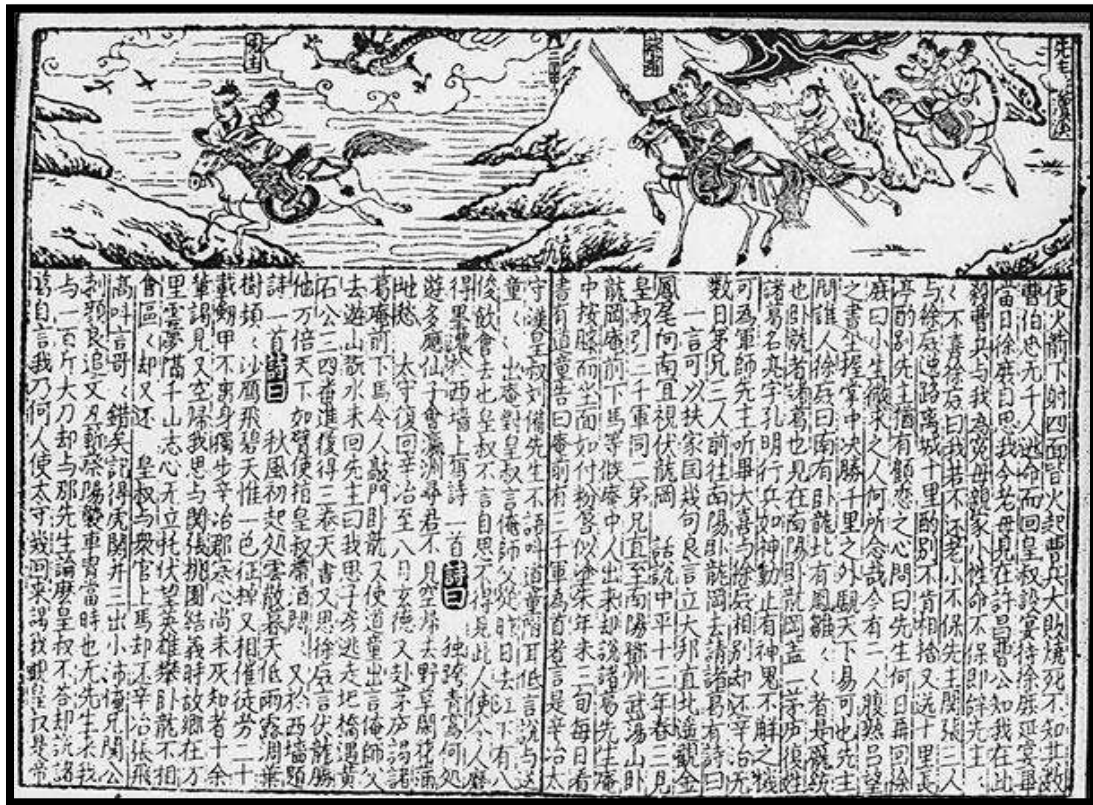 使火前下射四面皆火起曹兵大敗燒死不知其数
曹伯忠无千人逃命而回皇叔設宴待徐庶延宴畢
當日徐庶自思我今老母見在許昌曹公知我在此
殺曹兵与我為寃母親家小性命不保即辞先主
く不喜徐庶曰我若不还老小不保先主関張三人
与徐庶进路离城十里酌别不肯相捨又送十里長
亭酌别先主猶有顧恋之心問曰先生何日再回徐
庶曰小生微末之人何所念哉今有二人腹熟吕望
之書坐握掌中决勝千里之外覷天下易可也先主
問誰人徐庶曰南有卧龍北有鳳雛く者是龐統
也卧龍者諸葛也見在南陽卧龍岡盖一茅庐復姓
諸葛名亮字孔明行兵如神動止有神鬼不解之機
可為軍師先主听畢大喜与徐庶相别却还辛冶无
数日弟兄三人前往南陽卧龍岡去請諸葛有詩曰
一言可以扶家国幾句良言立大邦直北遥觀金
鳳尾向南宜視伏龍岡　話說中平十三年春三見
皇叔引三千軍同二弟兄直至南陽鄧州武湯山卧
龍岡庵前下馬等候庵中人出來却說諸葛先生庵
中按膝而坐面如付粉唇似塗朱年未三旬每日看
書有道童告曰庵前有三千軍為首者言是辛冶太
守漢皇叔刘備先生不語叫道童附耳低言說与道
童く出庵對皇叔言俺師父從昨日去江下有八
俊飲會去也皇叔不言自思不得見此人使令人磨
得墨濃於西墻上寫詩一首詩曰　独跨青鸞何処
遊多應仙子會瀛洲尋君不見空歸去野草閑花滿
地愁　太守復回辛冶至八月玄德又赴茅庐謁諸
葛庵前下馬令人敲門卧龍又使道童出言俺師父
去遊山翫水未回先主曰我思子房逃走圯橋遇黄
石公三四番進復得三卷天書又思徐庶言伏龍勝
他万倍天下如臂使指皇叔帶酒悶く又於西墻題
詩一首詩曰　秋風初起処雲散暮天低雨露凋葉
樹頻く沙鴈飛碧天惟一色征棹又相催徒労二十
載劒甲不离身獨步辛冶郡寒心尚未灰知者十余
輩謁見又空歸我思与関張桃園結義時故郷在万
里雲夢隔千山志心无立托伏望英雄攀卧龍不相
會區く却又还　皇叔与衆官上馬却还辛冶張飛
髙叫言哥く錯矣記得虎関并三出小沛俺兄関公
刺顔良追文丑斬蔡陽襲車胄當時也无先生来我
与一百斤大刀却与那先生論麽皇叔不答却說諸
葛自言我乃何人使太守幾回來謁我觀皇叔是帝